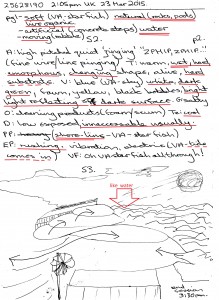 25628190 2:05pm UK 23 Mar 2015.
p2.
pg: soft (VA-starfish) natural (rocks, pools)
artificial (concrete steps) water
S2.
A: high pitched quiet 'pinging' "ZPHIP, ZPHIP."
(fine wire/line pinging) T: warm, wet, hard
amorphous, changing shape, alive, hard
substrate. V: blue (VA-sky) white, dark
green, fawn, yellow, black bobbles, bright
light reflecting dark surface. Gravelly
O: cleaning products (foam/scum) Ta: wet
D: low exposed inaccessible usually.
PP: shore-line - VA-starfish)
EP: rushing: vibration, electrical (VA-tide
comes in) VF: Oh VA-starfish all through!
S3.
like water
end
session
3:30pm.